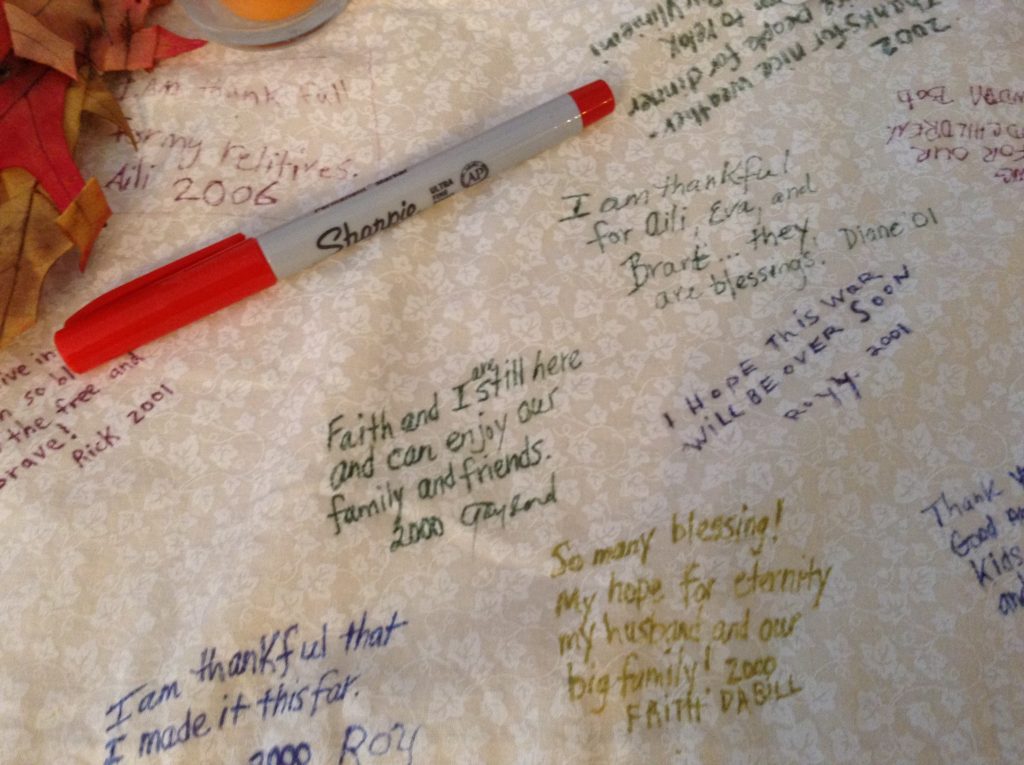 I am thank full
For my relitives.
Aili 2006
Sharpie
ULTRA
FINE
AP
2002
Thanks for nice weather -
people for dinner
to relax
I am thankful
for Aili, Eva, and
Brant... they
are blessings. Diane '01
BOB
CHILDREN
FOR OUR
I HOPE THIS WAR
WILL BE OVER SOON
ROYY. 2001
in
so
the free and
brave!
Rick 2001
Faith and I are still here
and can enjoy our
family and friends.
2000 Gaylord
So many blessing!
My hope for eternity
my husband and our
big family! 2000
FAITH DABILL
Thank
Good
Kids
and
I am thankful that
I made it this far.
2000 ROY